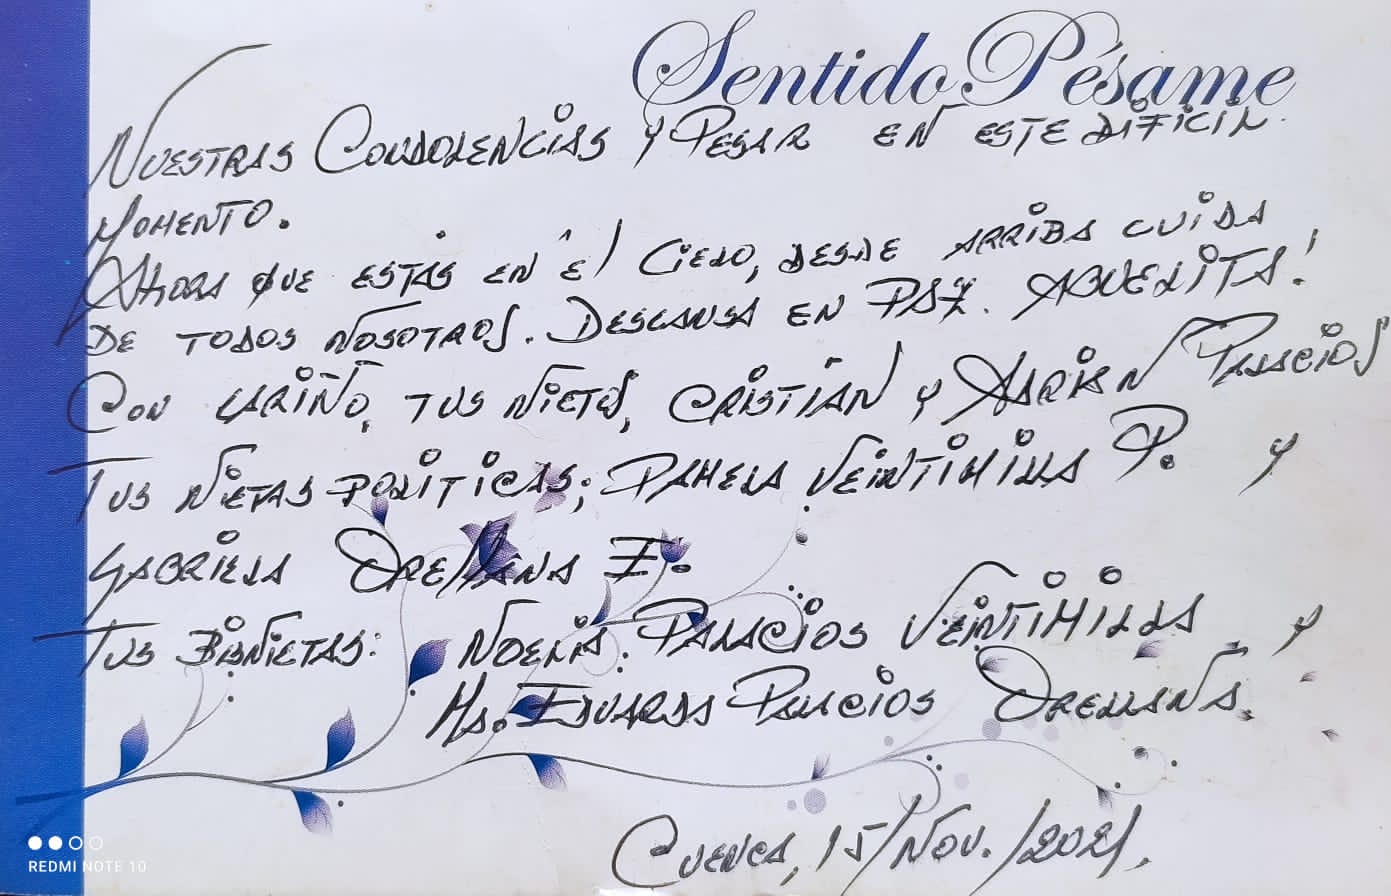 Sentido Pésame
NUESTRAS CONDOLENCIAS Y PESAR EN ESTE DIFICIL
MOMENTO.
AHORA QUE ESTÁS EN El CIELO, DESDE ARRIBA CUIDA
DE TODOS NOSOTROS. DESCANSA EN PAZ. ABUELITA!
CON CARIÑO, TUS NIETOS, CRISTIAN Y ADRIAN PALACIOS
TUS NIETAS POLITICAS; PAMELA VEINTIMILLA P. Y
GABRIELA ORELLANA I.
TUS BISNIETAS: NOELIA PALACIOS VEINTIMILLA Y
MA. EDUARDA PALACIOS ORELLANA.
CUENCA, 15/NOV./2021.
REDMI NOTE 10